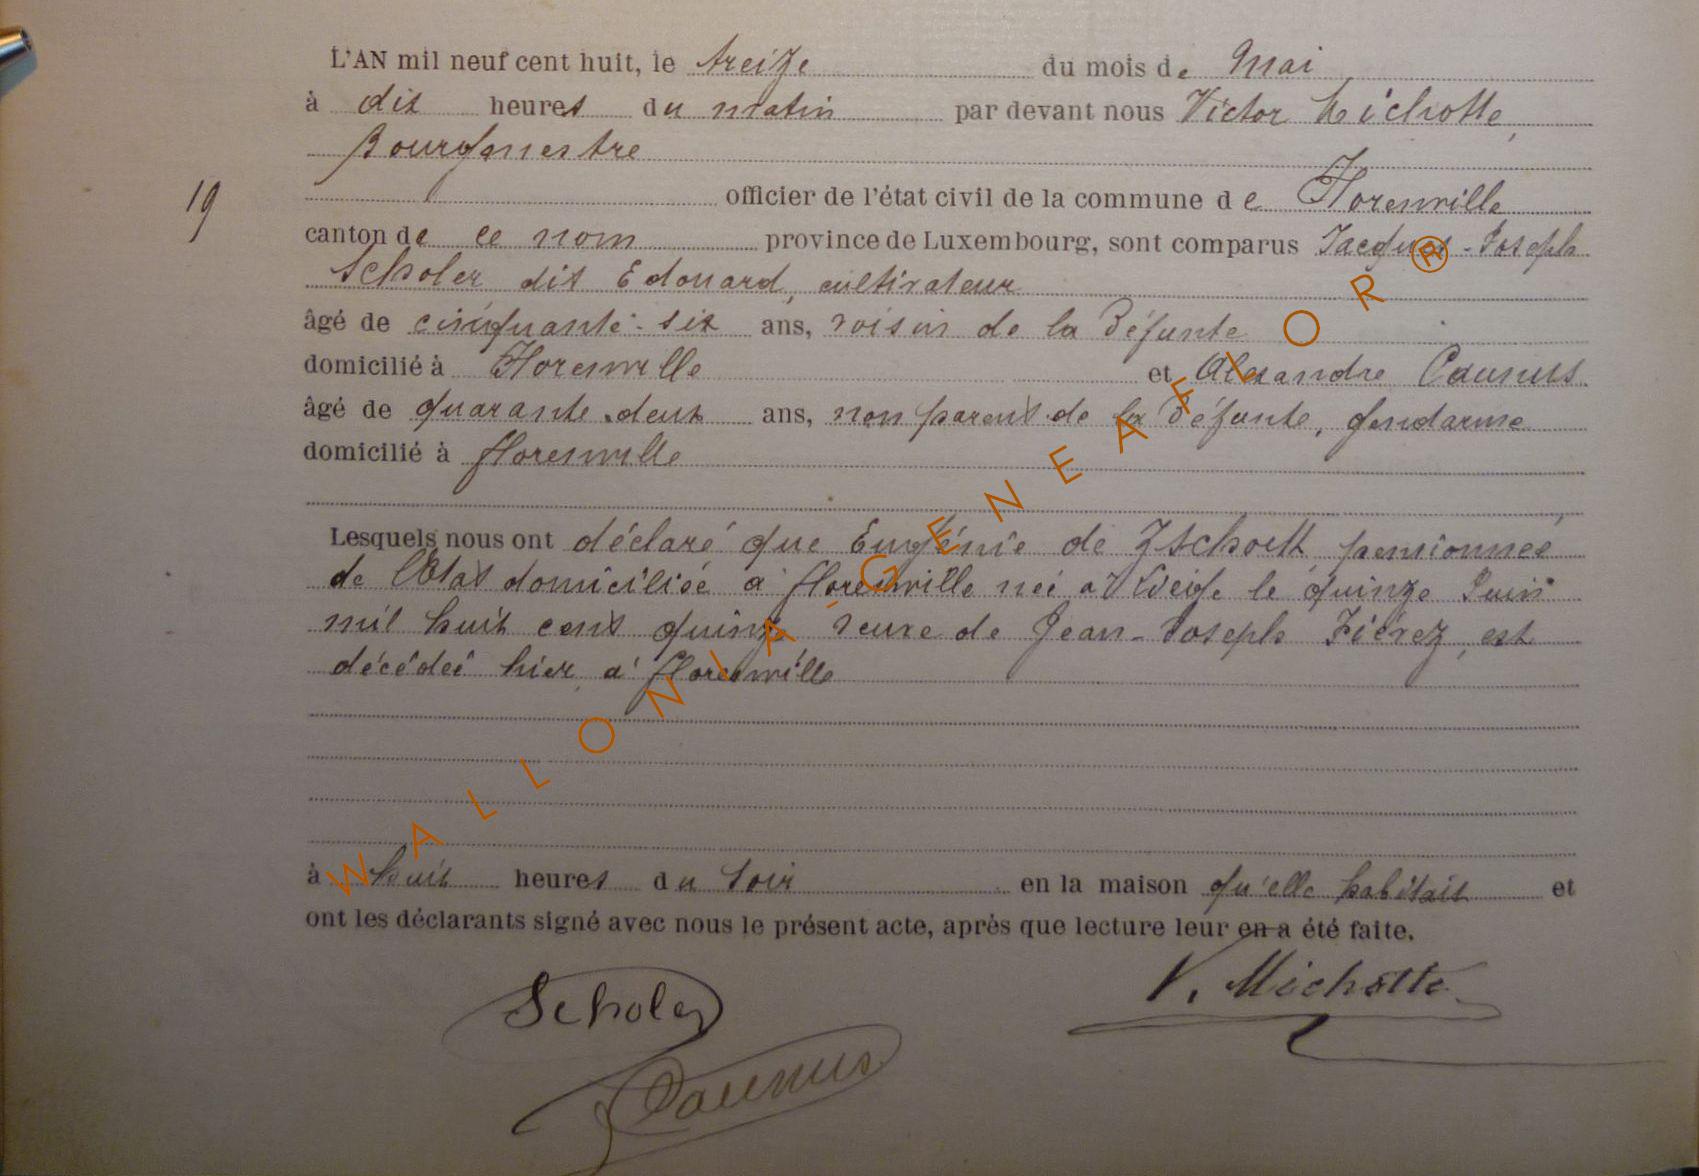 L'AN mil neuf cent huit, le treize du mois de Mai
à dix heures du matin par devant nous Victor Michotte,
Bourgmestre
19 officier de l'état civil de la commune de Florenville
canton de ce nom province de Luxembourg, sont comparus Jacques-Joseph
Scholer dit Edouard, cultivateur
âgé de cinquante-six ans, voisin de la Défunte
domicilié à Florenville et Alexandre
âgé de quarante-deux ans, non parent de la Défunte, gendarme
domicilié à florenville
Lesquels nous ont déclaré que Eugénie de Zschock pensionnée
de l'Etat domiciliée à florenville née à Liège le quinze Juin
mil huit cent quinze veuve de Jean-Joseph est
décédée hier à florenville
à huit heures du soir en la maison qu'elle habitait et
ont les déclarants signé avec nous le présent acte, après que lecture leur en a été faite.
V. Michotte
Scholer
WALLONIA-GENEAFLOR®